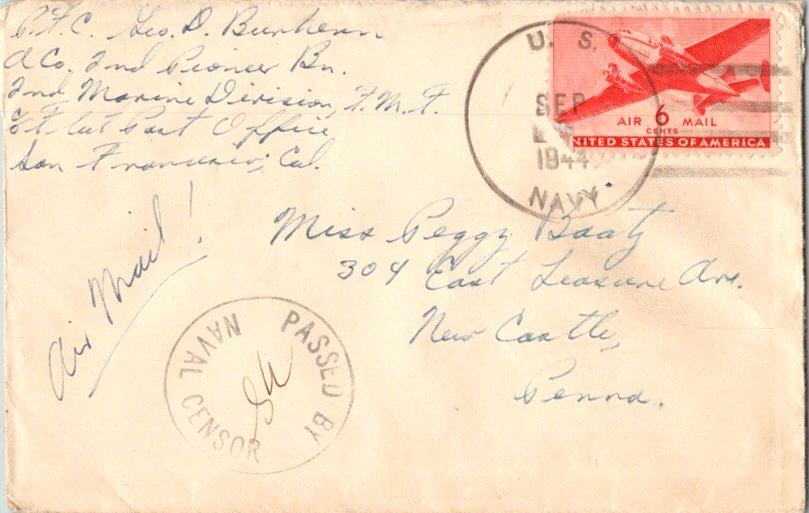 P.F.C. Geo. D. Burhenn
A Co. 2nd Pioneer Bn.
2nd Marine Division, F.M.F.
℅ Fleet Post Office
San Francisco, Cal.
U. S.
SEP
1944
NAVY
AIR 6 MAIL
CENTS
UNITED STATES OF AMERICA
Air Mail!
Miss Peggy Baatz
304 East Leasure Ave.
New Castle,
Penna.
PASSED BY
NAVAL CENSOR